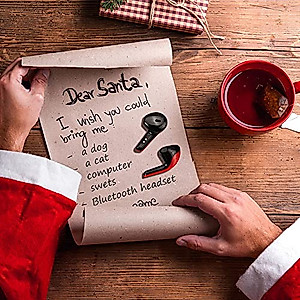 Dear Santa,
I wish you could
bring me
- a dog
- a cat
computer
swets
Bluetooth headset